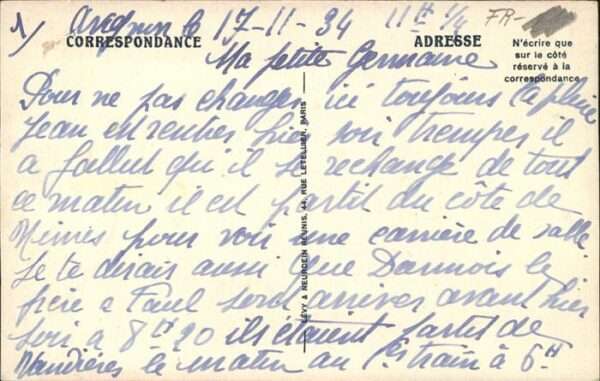 1/ le 17-11-34 11H 1/4 FR-
CORRESPONDANCE ADRESSE
N'écrire que
sur le côté
réservé à la
correspondance
Ma petite Germaine
Pour ne pas changer ici toujours la pluie
Jean est rentrer hier soir tremper il
a fallut qu'il se rechange de tout
ce matin il est partit du côte de
Nimes pour voir une carrière de sable
Je te dirais aussi que Darmois le
frère a Paul sont arriver avant hier
soir a 8H20 ils étaient partit de
Vandières le matin au 1er train à 6H
LÉVY & NEURDEIN RÉUNIS, 44, RUE LETELLIER, PARIS